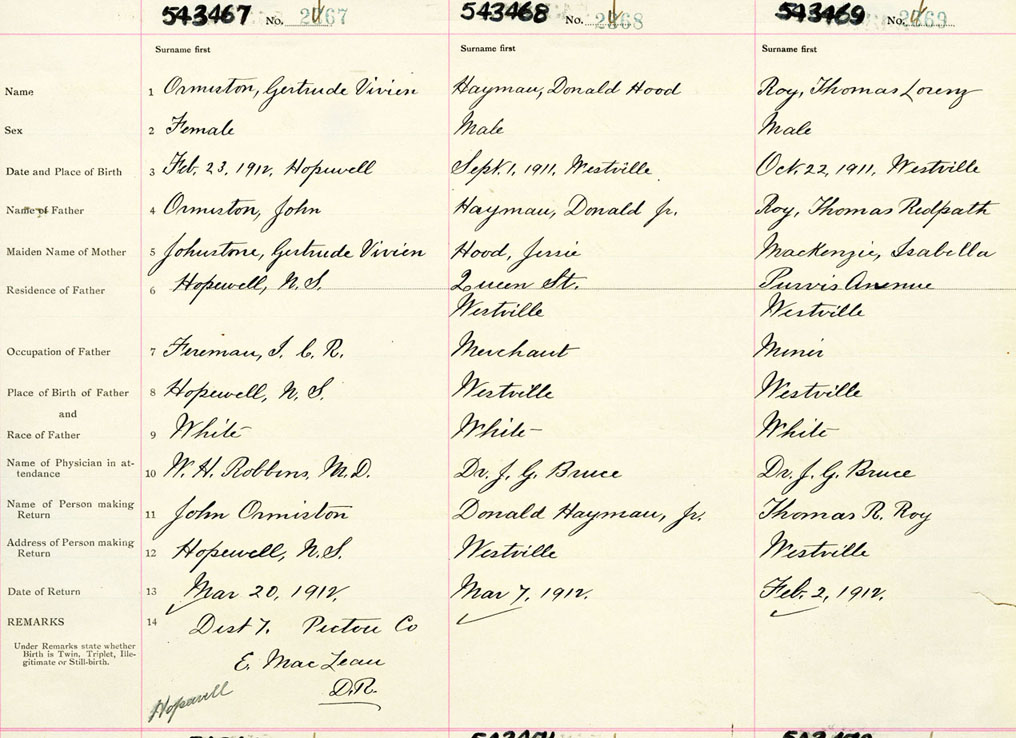 543467 No. 2467 543468 No. 2468 543469 No. 2469
Surname first Surname first Surname first
Name 1 Ormiston, Gertrude Vivien Hayman, Donald Hood Roy, Thomas Lorenz
Sex 2 Female Male Male
Date and Place of Birth 3 Feb. 23, 1912, Hopewell Sept. 1, 1911, Westville Oct. 22, 1911, Westville
Name of Father 4 Ormiston, John Hayman, Donald Jr. Roy, Thomas Redpath
Maiden Name of Mother 5 Johnstone, Gertrude Vivien Hood, Jessie MacKenzie, Isabella
Residence of Father 6 Hopewell, N.S. Queen St. Purvis Avenue
Westville Westville
Occupation of Father 7 Fireman, I. C. R. Merchant Miner
Place of Birth of Father 8 Hopewell, N.S. Westville Westville
and
Race of Father 9 White White White
Name of Physician in at-
tendance 10 W. H. Robbins, M.D. Dr. J. G. Bruce Dr. J. G. Bruce
Name of Person making
Return 11 John Ormiston Donald Hayman, Jr. Thomas R. Roy
Address of Person making
Return 12 Hopewell, N.S. Westville Westville
Date of Return 13 Mar 20, 1912, Mar 7, 1912. Feb. 2, 1912.
REMARKS 14 Dist 7. Pictou Co
Under Remarks state whether
Birth is Twin, Triplet, Ille-
gitimate or Still-birth.
E. MacLean
D.R.
Hopewell